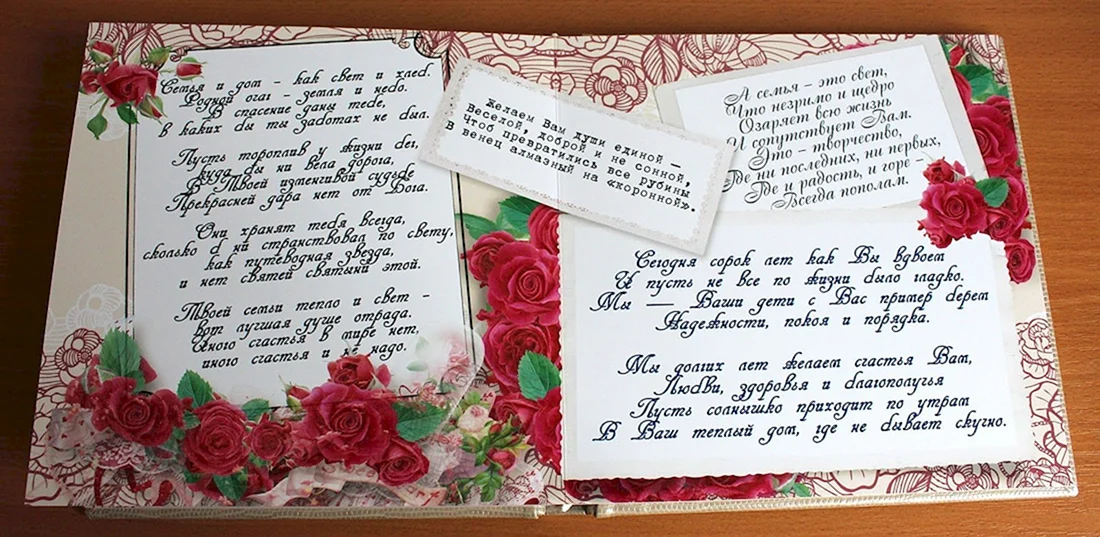 Семья и дом - как свет и хлеб.
Родной очаг - земля и небо.
В спасение даны тебе,
в каких бы ты заботах не был.
Пусть тороплив у жизни бег,
куда бы ни вела дорога,
В Твоей изменчивой судьбе
Прекрасней дара нет от Бога.
Они хранят тебя всегда,
сколько б ни странствовал по свету,
как путеводная звезда,
и нет святей святыни этой.
Твоей семьи тепло и свет -
вот лучшая душе отрада.
Иного счастья в мире нет,
иного счастья и не надо.
Желаем Вам души единой —
Веселой, доброй и не сонной,
Чтоб превратились все рубины
В венец алмазный на «коронной».
А семья - это свет,
Что незримо и щедро
Озаряет всю жизнь
И сопутствует Вам.
Это - творчество,
Где ни последних, ни первых,
Где и радость, и горе -
Всегда пополам.
Сегодня сорок лет как Вы вдвоем
И пусть не все по жизни было гладко.
Мы — Ваши дети с Вас пример берем
Надежности, покоя и порядка.
Мы долгих лет желаем счастья Вам,
Любви, здоровья и благополучья
Пусть солнышко приходит по утрам
В Ваш теплый дом, где не бывает скучно.